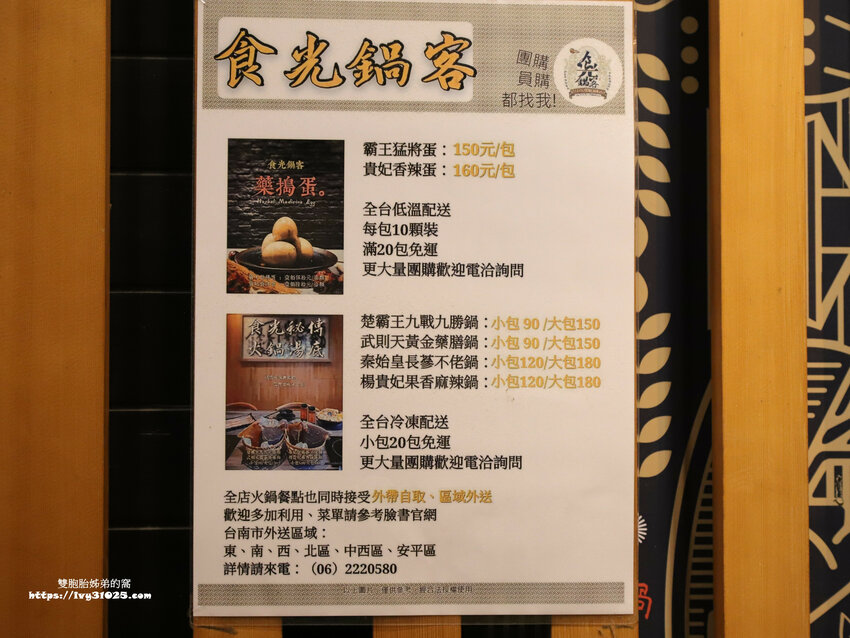 食光鍋客
團購
員購
都找我!
食光鍋客
藥搗蛋。
Herbal Medicine Egg
霸王猛將蛋：150元/包
貴妃香辣蛋：160元/包
全台低溫配送
每包10顆裝
滿20包免運
更大量團購歡迎電洽詢問
食光秘傳
火鍋湯底
楚霸王九戰九勝鍋：小包 90 /大包150
武則天黃金藥膳鍋：小包 90 /大包150
秦始皇長蔘不佬鍋：小包120/大包180
楊貴妃果香麻辣鍋：小包120/大包180
全台冷凍配送
小包20包免運
更大量團購歡迎電洽詢問
全店火鍋餐點也同時接受外帶自取、區域外送
歡迎多加利用、菜單請參考臉書官網
台南市外送區域：
東、南、西、北區、中西區、安平區
詳情請來電：（06）2220580
以上圖片，僅供參考，經合法授權使用
雙胞胎姊弟的窩
https://ivy31025.com